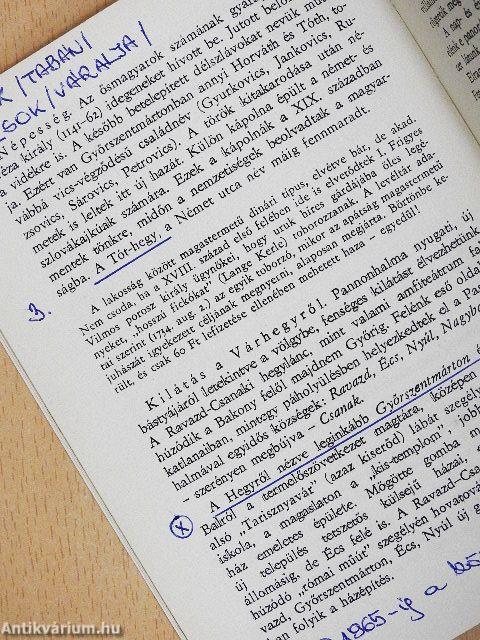 K / TABÁN /
SOK / VÁRALJA /
Népesség. Az ősmagyarok számának gyara
éza király (1141–62) idegeneket hívott be. Jutott belő
a vidékre is. A később betelepített délszlávokat nevük mu
ja. Ezért van Győrszentmártonban annyi Horváth és Tóth, to-
vábbá vics-végződésű családnév (Gyurkovics, Jankovics, Ru-
zsovics, Sárovics, Petrovics). A török kitakarodása után né-
metek is leltek itt új hazát. Külön kápolna épült a német- és
szlovákajkúak számára. Ezek a kápolnák a XIX. században
mentek tönkre, midőn a nemzetiségek beolvadtak a magyar-
ságba. A Tót-hegy, a Német utca név máig fennmaradt.
3.
A lakosság között magastermetű dinári típus, elvétve bár, de akad.
Nem csoda, ha a XVIII. század első felében ide is elverődtek I. Frigyes
Vilmos porosz király ügynökei, hogy uruk híres gárdájába öles legé-
nyeket, „hosszú fickókat" (Lange Kerle) toborozzanak. A levéltár ada-
tai szerint (1734. aug. 2.) az egyik toborzó, mikor az apátság magastermetű
juhászát igyekezett céljának megnyerni, alaposan megjárta. Börtönbe ke-
rült, és csak 60 Ft lefizetése ellenében mehetett haza – egyedül!
Kilátás a Várhegyről. Pannonhalma nyugati, új
bástyájáról letekintve a völgybe, fenséges kilátást élvezhetünk
A Ravazd-Csanaki hegylánc, mint valami amfiteátrum fa
húzódik a Bakony felől majdnem Győrig. Felénk eső olda
katlanaiban, mintegy páholyülésben helyezkedtek el a Pa
halmával egyidős községek: Ravazd, Écs, Nyúl, Nagyba
– szerényen megbújva – Csanak.
A Hegyről nézve leginkább Győrszentmárton é
X
Balról a termelőszövetkezet magtára, középen
alsó „Tarisznyavár" (azaz kiserőd) lábát szegély
iskola, a magaslaton a „kis-templom" jobb
ház emeletes épülete. Mögötte gomba m
új település tetszetős külsejű házai, s
állomásig, de Écs felé is. A Ravazd-Csa
húzódó „római műút" szegélyén hovatová
vazd, Győrszentmárton, Écs, Nyúl új g
an folyik a házépítés.
1965-ig a
Antikvárium.hu